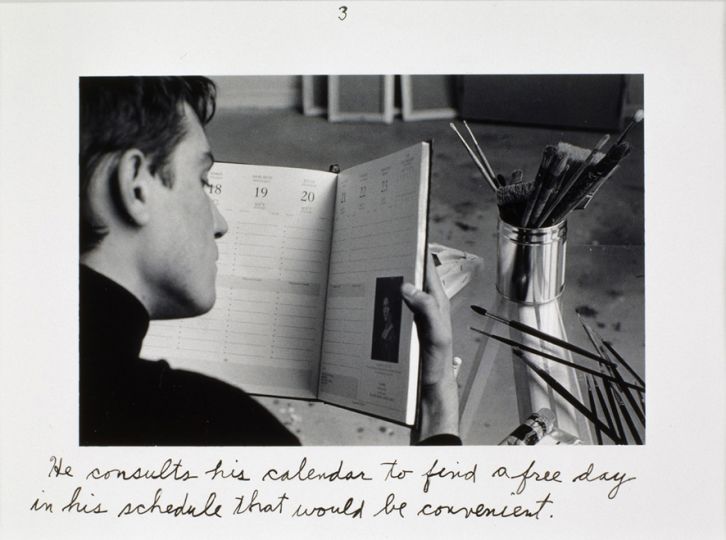 3
18
19
20
21
22
23
He consults his calendar to find a free day
in his schedule that would be convenient.